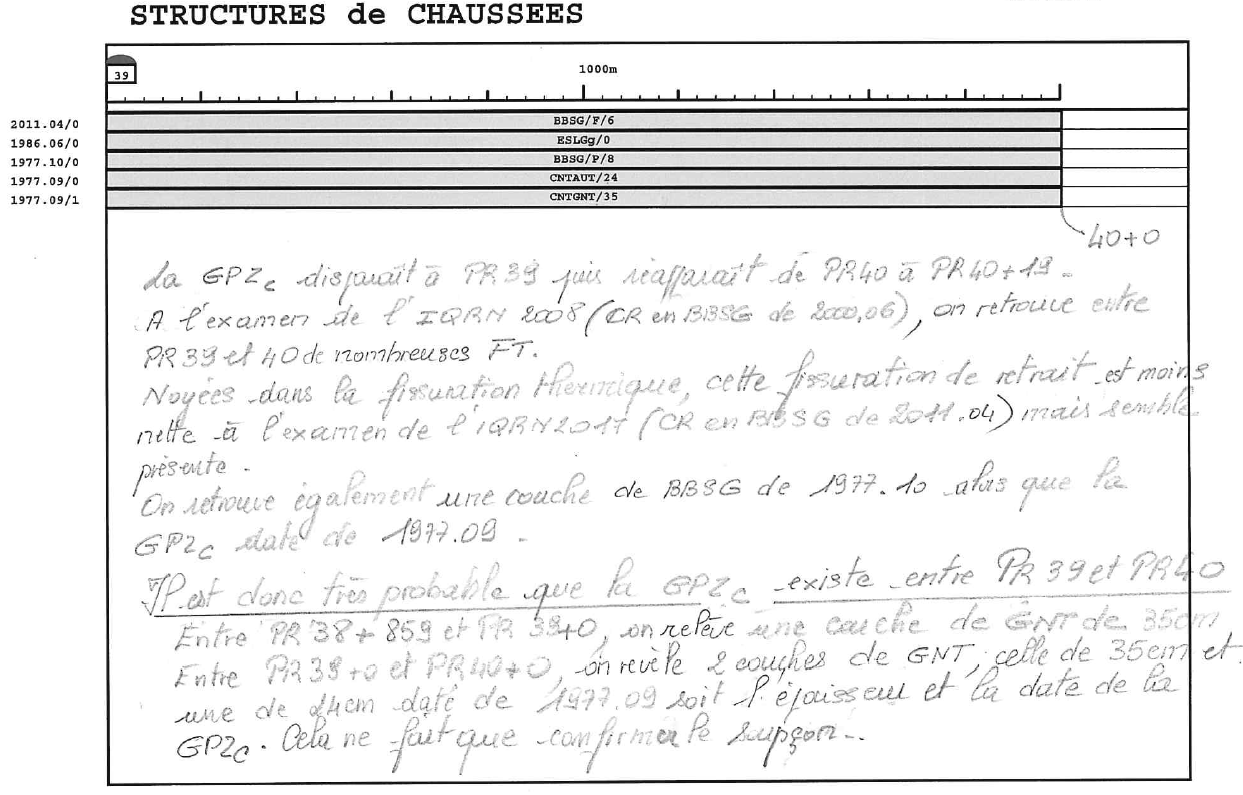 STRUCTURES de CHAUSSEES
39
1000m
2011.04/0 BBSG/F/6
1986.06/0 ESLGg/0
1977.10/0 BBSG/P/8
1977.09/0 CNTAUT/24
1977.09/1 CNTGNT/35
40+0
La GPZc disparaît à PR 39 puis réapparaît de PR40 à PR40+19.
A l'examen de l'IQRN 2008 (CR en BBSG de 2000,06), on retrouve entre
PR 39 et 40 de nombreuses FT.
Noyées dans la fissuration thermique, cette fissuration de retrait est moins
nette à l'examen de l'IQRN2011 (CR en BBSG de 2011.04) mais semble
présente.
On retrouve également une couche de BBSG de 1977.10 alors que la
GPZc date de 1977.09.
Il est donc très probable que la GPZc existe entre PR 39 et PR40
Entre PR 38+859 et PR 39+0, on relève une couche de GNT de 35cm
Entre PR 39+0 et PR40+0, on revèle 2 couches de GNT, celle de 35cm et
une de 24cm daté de 1977.09 soit l'épaisseur et la date de la
GPZc. Cela ne fait que confirmer le supçon..